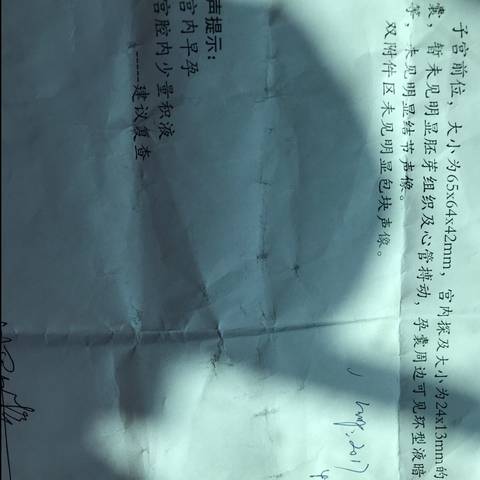 子宫前位，大小为65x64x42mm，宫内探及大小为24x13mm的
囊，暂未见明显胚芽组织及心管搏动，孕囊周边可见环型液暗
等，未见明显结节声像。
双附件区未见明显包块声像。
声提示：
宫内早孕
宫腔内少量积液
------建议复查